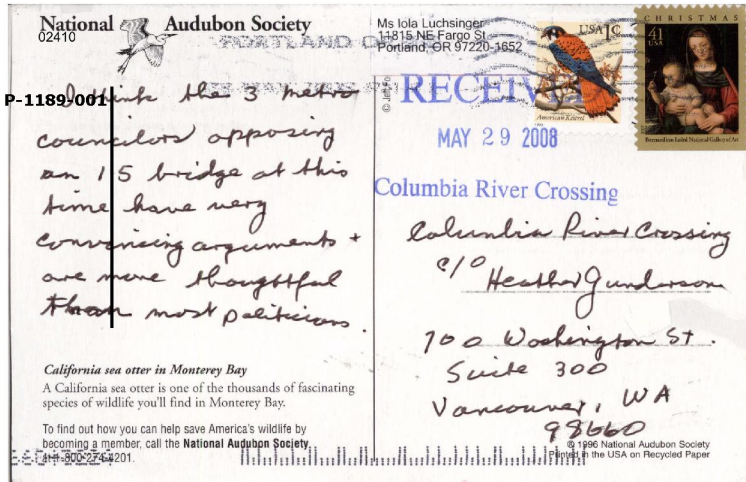 National Audubon Society
02410
Ms Iola Luchsinger
11815 NE Fargo St
Portland, OR 97220-1652
PORTLAND
USA 1¢
American Kestrel
CHRISTMAS
41
USA
Bernardino Luini, National Gallery of Art
P-1189-001
I think the 3 metro
councilors opposing
an I 5 bridge at this
time have very
convincing arguments +
are more thoughtful
than most politicians.
© Jeff Fo
RECEIV
MAY 29 2008
Columbia River Crossing
Columbia River Crossing
c/o Heather Gunderson
700 Washington St.
Suite 300
Vancouver, WA
98660
California sea otter in Monterey Bay
A California sea otter is one of the thousands of fascinating
species of wildlife you'll find in Monterey Bay.
To find out how you can help save America's wildlife by
becoming a member, call the National Audubon Society
at 1-800-274-4201.
© 1996 National Audubon Society
Printed in the USA on Recycled Paper